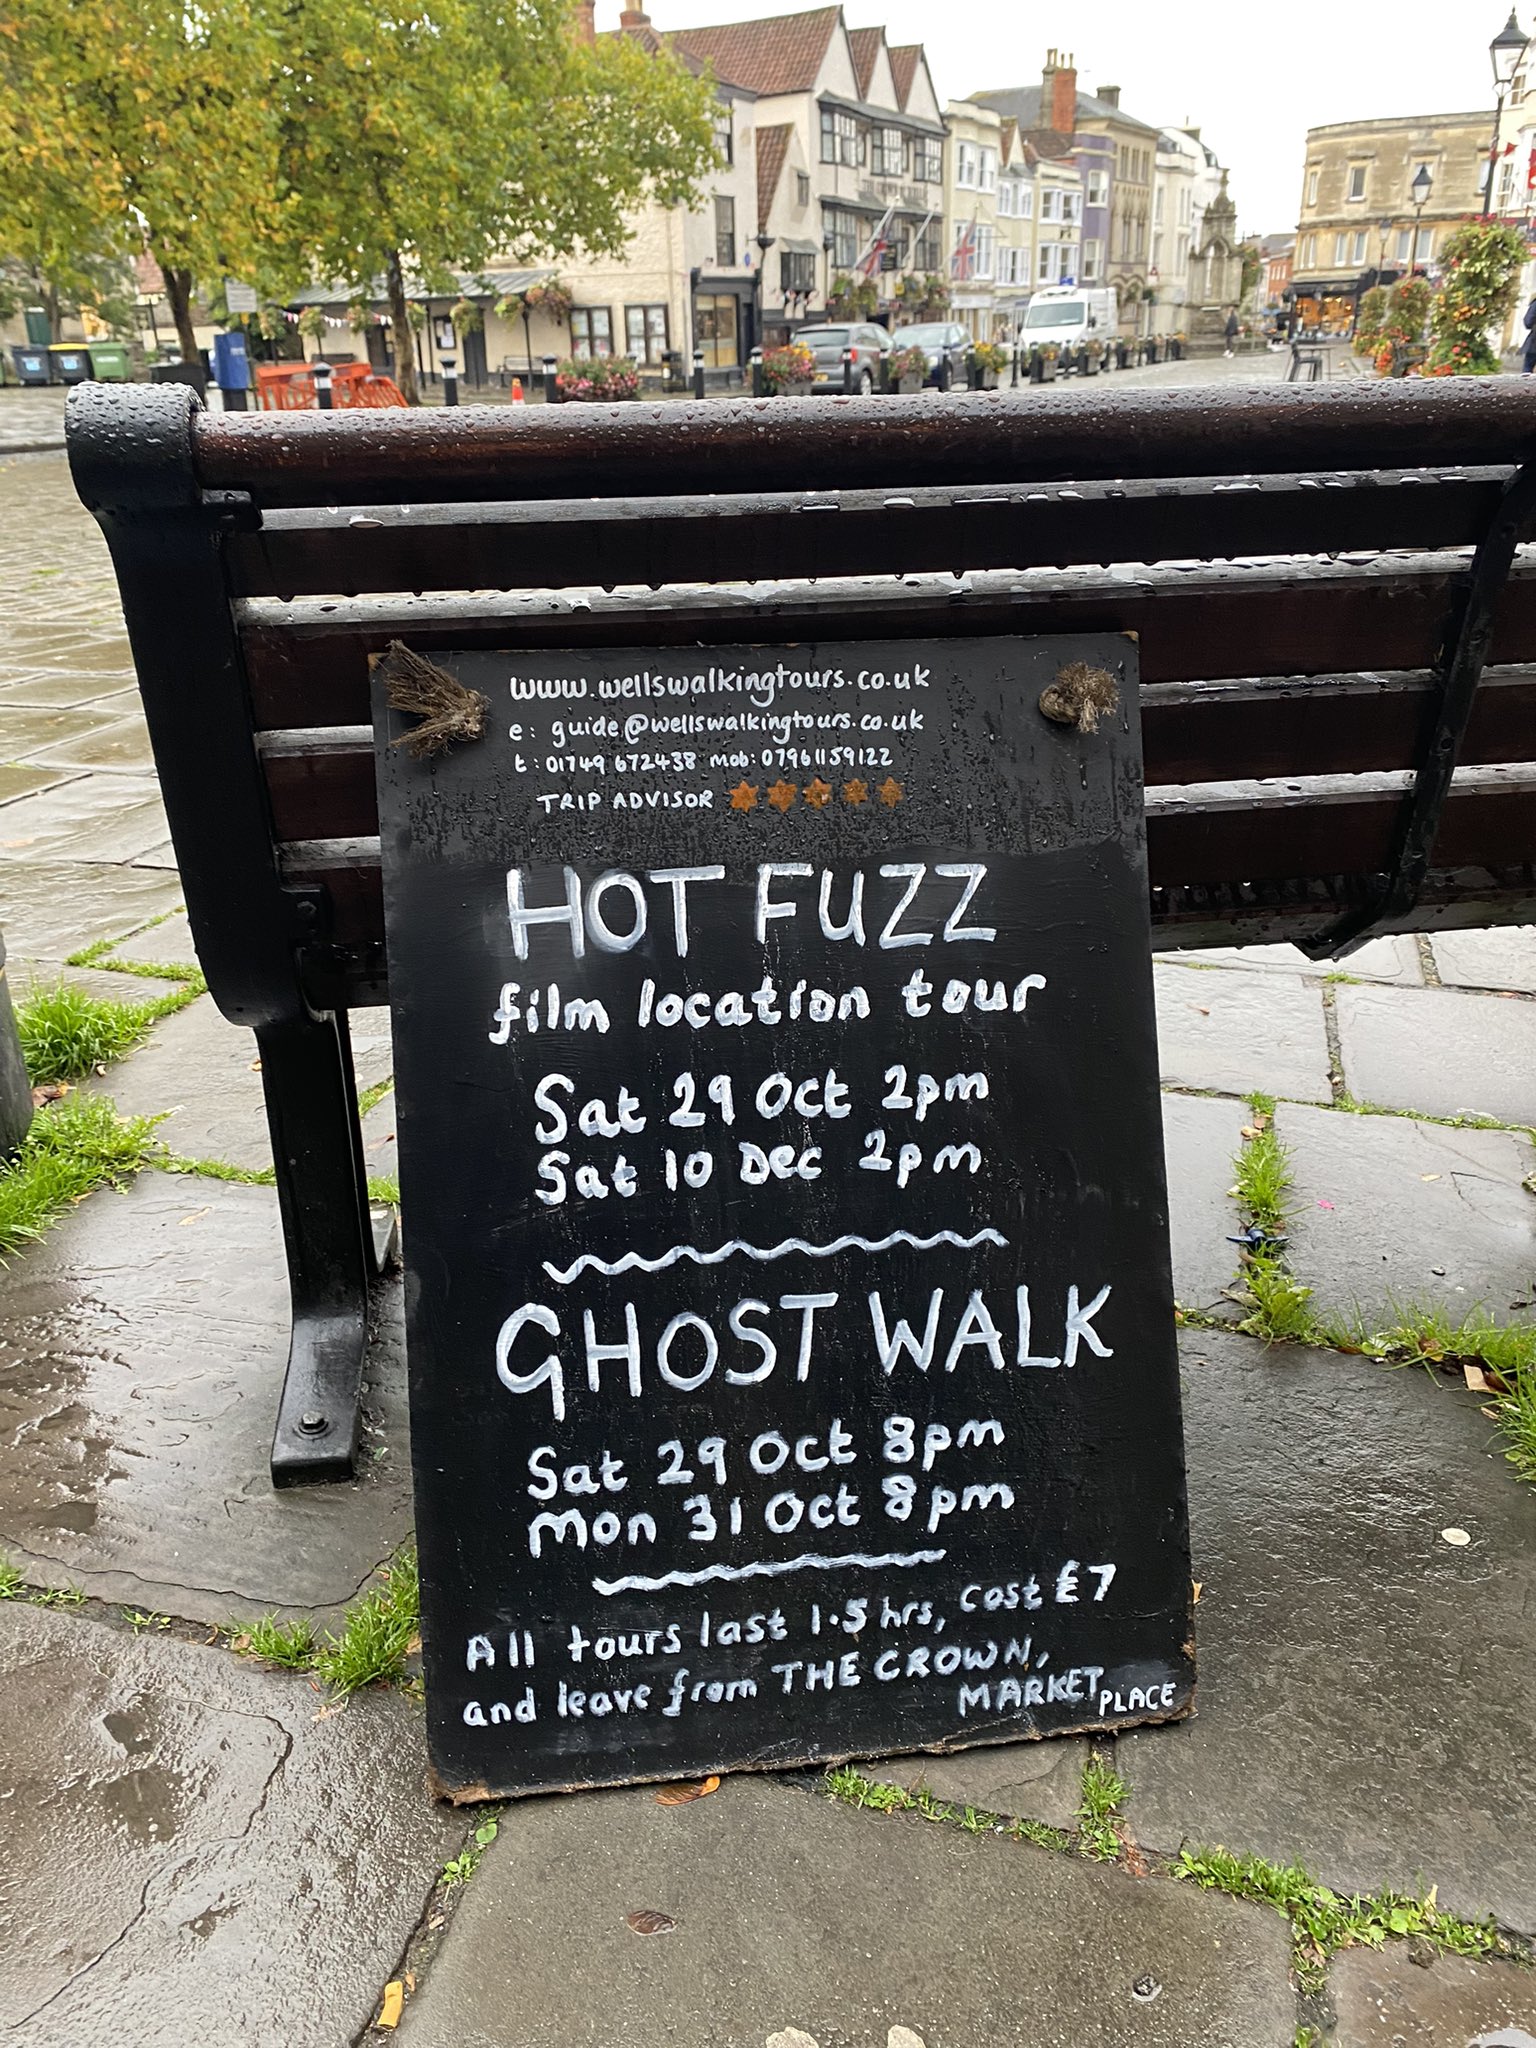 www.wellswalkingtours.co.uk
e: guide@wellswalkingtours.co.uk
t: 01749 672438 mob: 07961159122
TRIP ADVISOR
HOT FUZZ
film location tour
Sat 29 Oct 2pm
Sat 10 Dec 2pm
GHOST WALK
Sat 29 Oct 8pm
Mon 31 Oct 8pm
All tours last 1.5 hrs, cost £7
and leave from THE CROWN,
MARKET PLACE